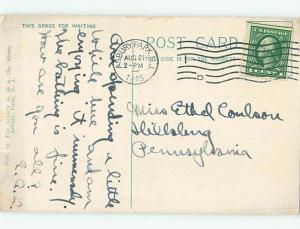 THIS SPACE FOR WRITING
POST CARD
THIS SIDE IS FOR THE ADDRESS
ASBURY PARK, N.J.
AUG 21
2-PM
1915
D
Miss Ethel Coulson
Shillsburg
Pennsylvania
Am spending a little
while here and am
enjoying it immensely.
The bathing is fine.
How are you all?